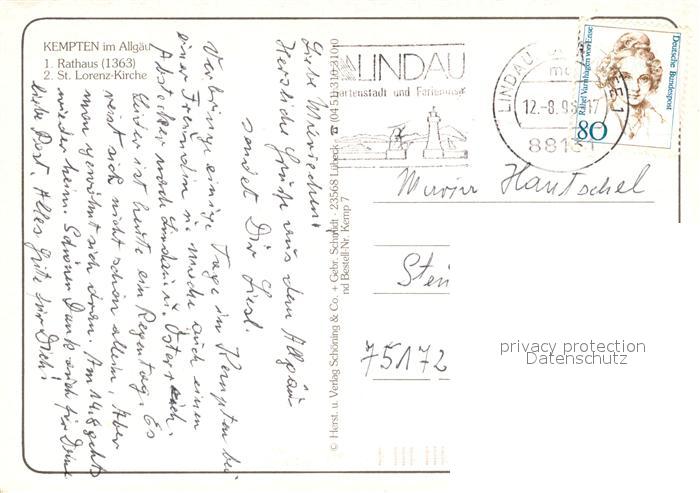 KEMPTEN im Allgäu
1. Rathaus (1363)
2. St. Lorenz-Kirche
Herzliche Grüße aus dem Allgäu
sendet Dir Liesl.
Verbringe einige Tage in Kempten bei
einer Freundin u. mache auch einen
Abstecher nach Lindau u. Österreich.
Leider ist heute ein Regentag. Es
reist sich nicht schön allein, aber
man gewöhnt sich dran. Am 14.8. gehts
wieder heim. Schönen Dank auch für Deine
liebe Post. Alles Gute für Dich!
© Herst. u. Verlag Schöning & Co. + Gebr. Schmidt · 23568 Lübeck · ☎ (0451) 310310
nd Bestell-Nr. Kemp 7
LINDAU
artenstadt und Ferieninsel
LINDAU
12.-8.9 -17
88131
Deutsche Bundespost
Rahel Varnhagen von Ense
80
Hantschel
Stei
75172
privacy protection
Datenschutz